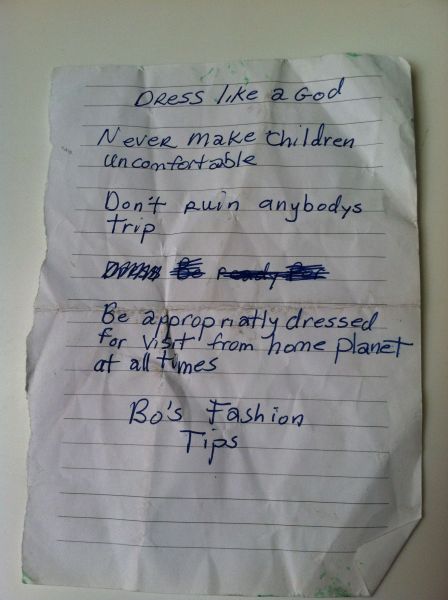 Dress like a God
Never make children
uncomfortable
Don't ruin anybodys
trip
Be Ready For
Be appropriatly dressed
for visit from home planet
at all times
Bo's Fashion
Tips